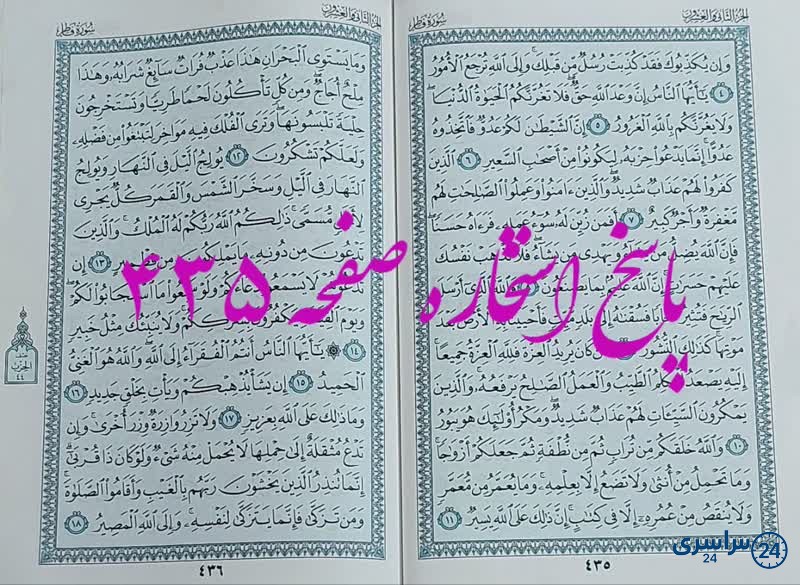 سورة فاطر
الجزء الثاني والعشرون
وَإِن يُكَذِّبُوكَ فَقَدْ كُذِّبَتْ رُسُلٌ مِّن قَبْلِكَ ۚ وَإِلَى اللَّهِ تُرْجَعُ الْأُمُورُ
٤ يَا أَيُّهَا النَّاسُ إِنَّ وَعْدَ اللَّهِ حَقٌّ ۖ فَلَا تَغُرَّنَّكُمُ الْحَيَوٰةُ الدُّنْيَا ۖ
وَلَا يَغُرَّنَّكُم بِاللَّهِ الْغَرُورُ ٥ إِنَّ الشَّيْطَانَ لَكُمْ عَدُوٌّ فَاتَّخِذُوهُ
عَدُوًّا ۚ إِنَّمَا يَدْعُو حِزْبَهُ لِيَكُونُوا مِنْ أَصْحَابِ السَّعِيرِ ٦ الَّذِينَ
كَفَرُوا لَهُمْ عَذَابٌ شَدِيدٌ ۖ وَالَّذِينَ ءَامَنُوا وَعَمِلُوا الصَّالِحَاتِ لَهُم
مَّغْفِرَةٌ وَأَجْرٌ كَبِيرٌ ٧ أَفَمَن زُيِّنَ لَهُ سُوءُ عَمَلِهِ فَرَءَاهُ حَسَنًا ۖ
فَإِنَّ اللَّهَ يُضِلُّ مَن وَيَهْدِي مَن يَشَاءُ ۖ فَلَا تَذْهَبْ نَفْسُكَ
عَلَيْهِمْ حَسَرَاتٍ ۚ إِنَّ اللَّهَ عَلِيمٌ بِمَا يَصْنَعُونَ وَاللَّهُ الَّذِي أَرْسَلَ
الرِّيَاحَ فَتُثِيرُ سَحَابًا فَسُقْنَاهُ إِلَىٰ بَلَدٍ فَأَحْيَيْنَا بِهِ الْأَرْضَ بَعْدَ
مَوْتِهَا ۚ كَذَٰلِكَ النُّشُورُ كَانَ يُرِيدُ الْعِزَّةَ فَلِلَّهِ الْعِزَّةُ جَمِيعًا ۚ
إِلَيْهِ يَصْعَدُ الْكَلِمُ الطَّيِّبُ وَالْعَمَلُ الصَّالِحُ يَرْفَعُهُ ۚ وَالَّذِينَ
يَمْكُرُونَ السَّيِّئَاتِ لَهُمْ عَذَابٌ شَدِيدٌ ۖ وَمَكْرُ أُولَٰئِكَ هُوَ يَبُورُ
١٠ وَاللَّهُ خَلَقَكُم مِّن تُرَابٍ ثُمَّ مِن نُّطْفَةٍ ثُمَّ جَعَلَكُمْ أَزْوَاجًا ۚ
وَمَا تَحْمِلُ مِنْ أُنثَىٰ وَلَا تَضَعُ إِلَّا بِعِلْمِهِ ۚ وَمَا يُعَمَّرُ مِن مُّعَمَّرٍ
وَلَا يُنقَصُ مِنْ عُمُرِهِ إِلَّا فِي كِتَابٍ ۚ إِنَّ ذَٰلِكَ عَلَى اللَّهِ يَسِيرٌ ١١
٤٣٥
الجزء الثاني والعشرون
سورة فاطر
وَمَا يَسْتَوِي الْبَحْرَانِ هَٰذَا عَذْبٌ فُرَاتٌ سَائِغٌ شَرَابُهُ وَهَٰذَا
مِلْحٌ أُجَاجٌ ۖ وَمِن كُلٍّ تَأْكُلُونَ لَحْمًا طَرِيًّا وَتَسْتَخْرِجُونَ
حِلْيَةً تَلْبَسُونَهَا ۖ وَتَرَى الْفُلْكَ فِيهِ مَوَاخِرَ لِتَبْتَغُوا مِن فَضْلِهِ
وَلَعَلَّكُمْ تَشْكُرُونَ ١٢ يُولِجُ اللَّيْلَ فِي النَّهَارِ وَيُولِجُ
النَّهَارَ فِي اللَّيْلِ وَسَخَّرَ الشَّمْسَ وَالْقَمَرَ كُلٌّ يَجْرِي
لِأَجَلٍ مُّسَمًّى ۚ ذَٰلِكُمُ اللَّهُ رَبُّكُمْ لَهُ الْمُلْكُ ۚ وَالَّذِينَ
تَدْعُونَ مِن دُونِهِ مَا يَمْلِكُونَ مِن قِطْمِيرٍ ١٣ إِن
تَدْعُوهُمْ لَا يَسْمَعُوا دُعَاءَكُمْ وَلَوْ سَمِعُوا مَا اسْتَجَابُوا لَكُمْ ۖ
وَيَوْمَ الْقِيَامَةِ يَكْفُرُونَ بِشِرْكِكُمْ ۚ وَلَا يُنَبِّئُكَ مِثْلُ خَبِيرٍ
١٤ ۞ يَا أَيُّهَا النَّاسُ أَنتُمُ الْفُقَرَاءُ إِلَى اللَّهِ ۖ وَاللَّهُ هُوَ الْغَنِيُّ
الْحَمِيدُ ١٥ إِن يَشَأْ يُذْهِبْكُمْ وَيَأْتِ بِخَلْقٍ جَدِيدٍ ١٦
وَمَا ذَٰلِكَ عَلَى اللَّهِ بِعَزِيزٍ ١٧ وَلَا تَزِرُ وَازِرَةٌ وِزْرَ أُخْرَىٰ ۚ وَإِن
تَدْعُ مُثْقَلَةٌ إِلَىٰ حِمْلِهَا لَا يُحْمَلْ مِنْهُ شَيْءٌ وَلَوْ كَانَ ذَا قُرْبَىٰ ۗ
إِنَّمَا تُنذِرُ الَّذِينَ يَخْشَوْنَ رَبَّهُم بِالْغَيْبِ وَأَقَامُوا الصَّلَوٰةَ ۚ
وَمَن تَزَكَّىٰ فَإِنَّمَا يَتَزَكَّىٰ لِنَفْسِهِ ۚ وَإِلَى اللَّهِ الْمَصِيرُ ١٨
٤٣٦
الحزب
٤٤
پاسخ استخاره صفحه ۴۳۵
سراسری
24
24